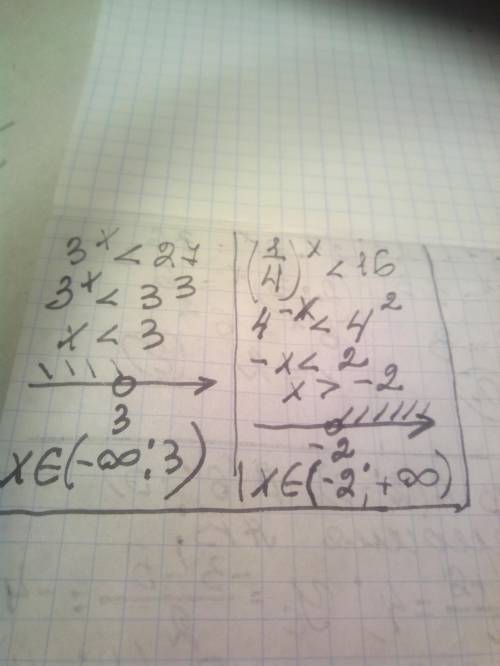 3^x < 27
3^x < 3^3
x < 3
3
x∈(-∞;3)
(1/4)^x < 16
4^-x < 4^2
-x < 2
x > -2
-2
x∈(-2;+∞)